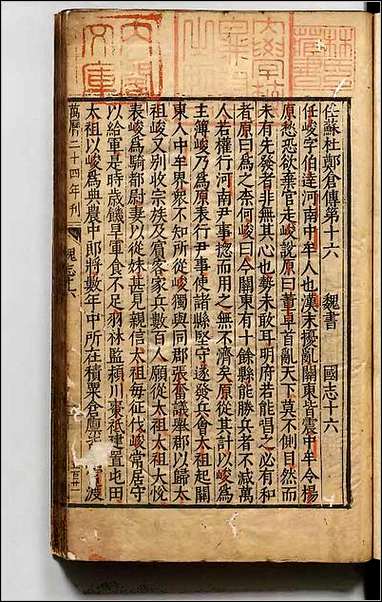 任蘇杜鄭倉傳第十六 魏書 國志十六
任峻字伯達河南中牟人也漢末擾亂關東皆震中牟令楊
原愁恐欲棄官走峻說原曰董卓首亂天下莫不側目然而
未有先發者非無其心也勢未敢耳明府若能唱之必有和
者原曰為之柰何峻曰今關東有十餘縣能勝兵者不減萬
人若權行河南尹事揔而用之無不濟矣原從其計以峻為
主簿峻乃為原表行尹事使諸縣堅守遂發兵會太祖起關
東入中牟界衆不知所從峻獨與同郡張奮議舉郡以歸太
祖峻又別收宗族及賓客家兵數百人願從太祖太祖大悅
表峻為騎都尉妻以從妹甚見親信太祖每征伐峻常居守
以給軍是時歲饑旱軍食不足羽林監潁川棗祗建置屯田
太祖以峻為典農中郎將數年中所在積粟倉廩皆 渡
萬曆二十四年刊 魏志十六
內閣文庫